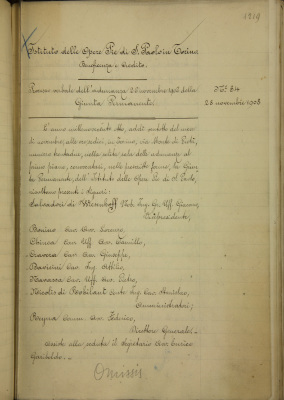 1219
Istituto delle Opere Pie di S. Paolo in Torino
Beneficenza e Credito
Processo verbale dell'adunanza 28 novembre 1908 della
Giunta Permanente.
N° 84
28 novembre 1908
L'anno millenovecento otto, addì ventotto del mese
di novembre, alle ore dieci, in Torino, via Monte di Pietà,
numero trentadue, nella solita sala delle adunanze al
primo piano, convocatasi, nelle prescritte forme, la Giun-
ta Permanente dell'Istituto delle Opere Pie di S. Paolo,
risultano presenti i signori:
Salvadori di Wiesenhoff Nob. Ing. Gr. Uff. Giovanni,
Vicepresidente,
Bonino Cav. Avv. Lorenzo,
Chiesa Cav. Uff. Avv. Camillo,
Cav. Avv. Giuseppe,
Cav. Ing. Attilio,
Cav. Uff. Avv. Pietro,
Nicolis di Robilant Conte Ing. Cav. Amedeo,
Amministratori;
Comm. Avv. Federico,
Direttore Generale.
Assiste alla seduta il Segretario Avv. Enrico
Garibaldo.
Omissis